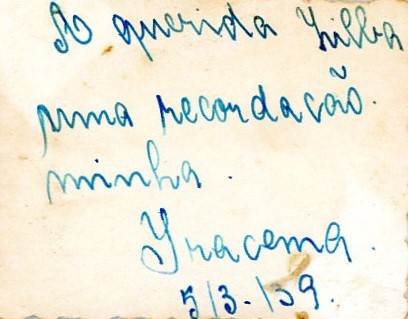 A querida Zilba
uma recordação.
minha.
Yracema.
5/3-/59.